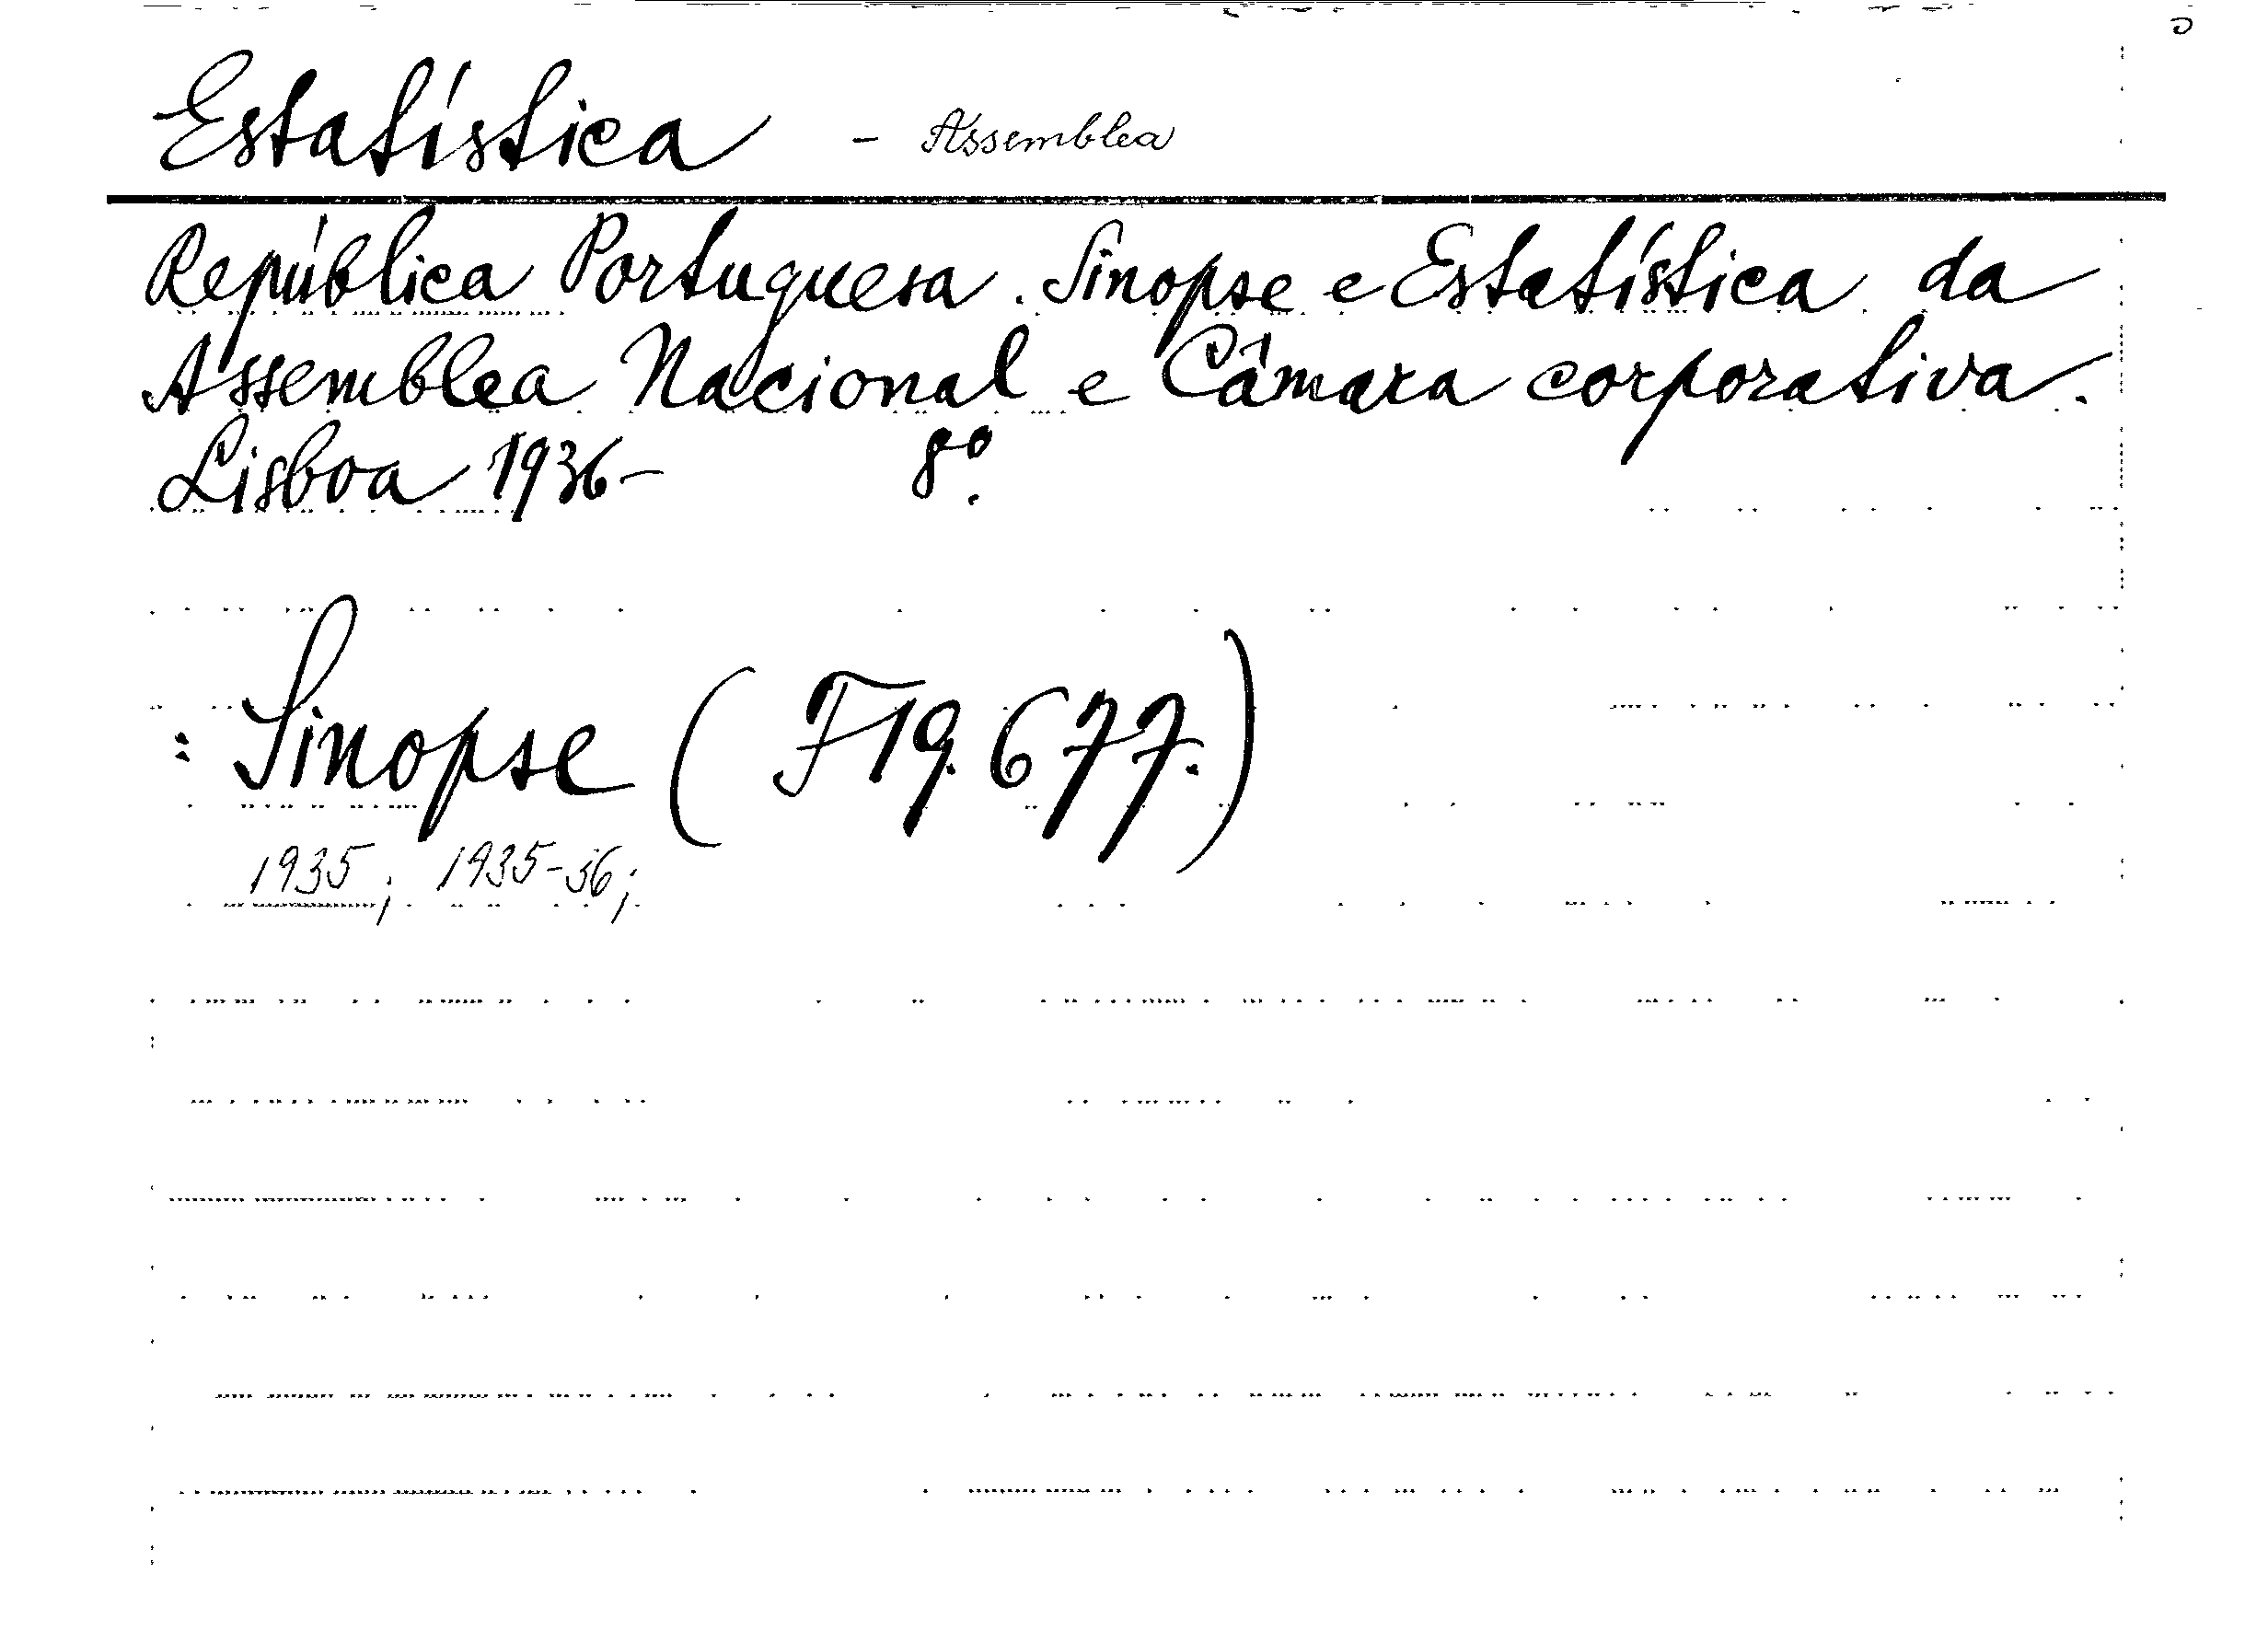 Estatística - Assemblea
República Portuguesa. Sinopse e Estatística da
Assemblea Nacional e Câmara corporativa.
Lisboa 1936- 8º.
: Sinopse (F19.677.)
1935; 1935-36;